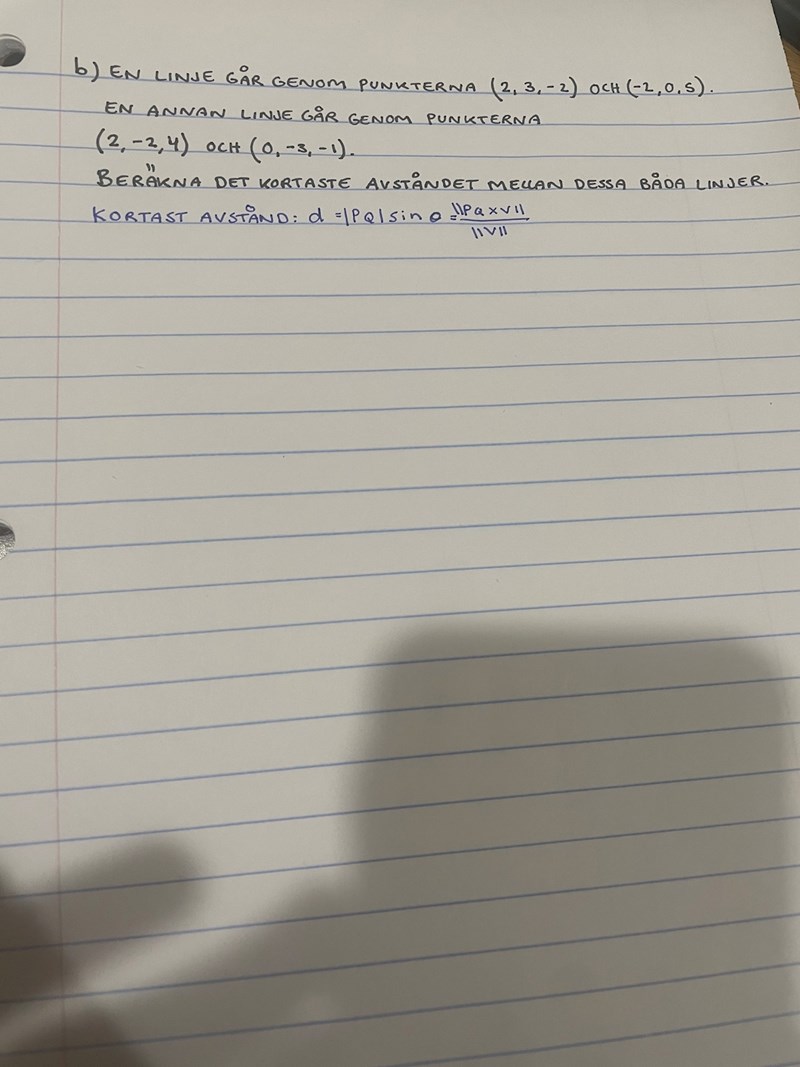 b) EN LINJE GÅR GENOM PUNKTERNA (2, 3, -2) OCH (-2, 0, 5).
EN ANNAN LINJE GÅR GENOM PUNKTERNA
(2, -2, 4) OCH (0, -3, -1).
BERÄKNA DET KORTASTE AVSTÅNDET MELLAN DESSA BÅDA LINJER.
KORTAST AVSTÅND: d = |PQ| sin θ = ||PQ x V|| / ||V||